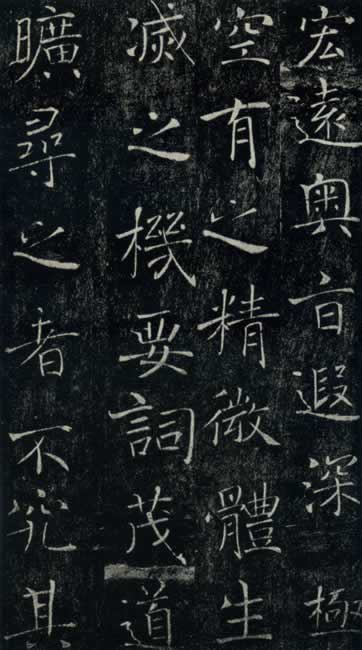 宏遠奧旨遐深極
空有之精微體生
滅之機要詞茂道
曠尋之者不究其